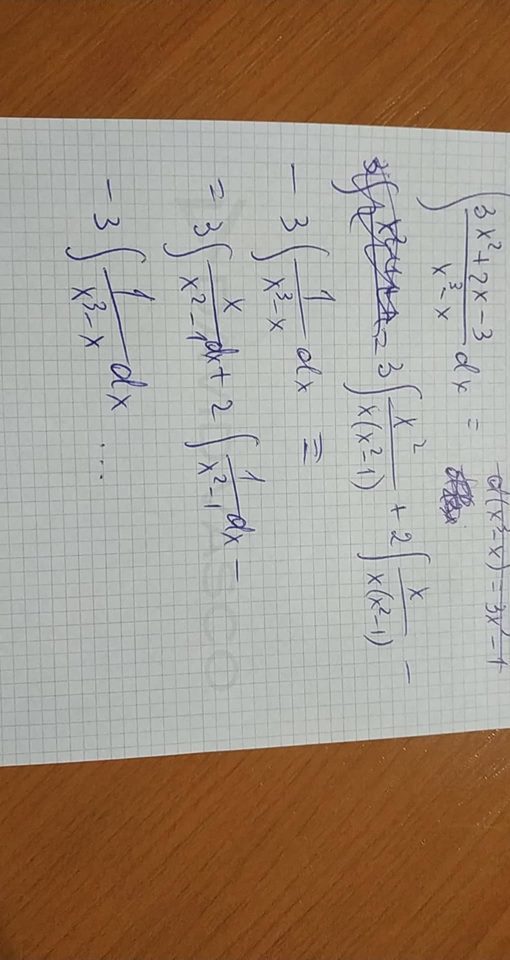 ∫ (3x² + 2x - 3)/(x³ - x) dx = d(x³-x) = 3x²-1
= 3 ∫ x²/(x(x²-1)) + 2 ∫ x/(x(x²-1)) -
- 3 ∫ 1/(x³-x) dx =
= 3 ∫ x/(x²-1) dx + 2 ∫ 1/(x²-1) dx -
- 3 ∫ 1/(x³-x) dx ...